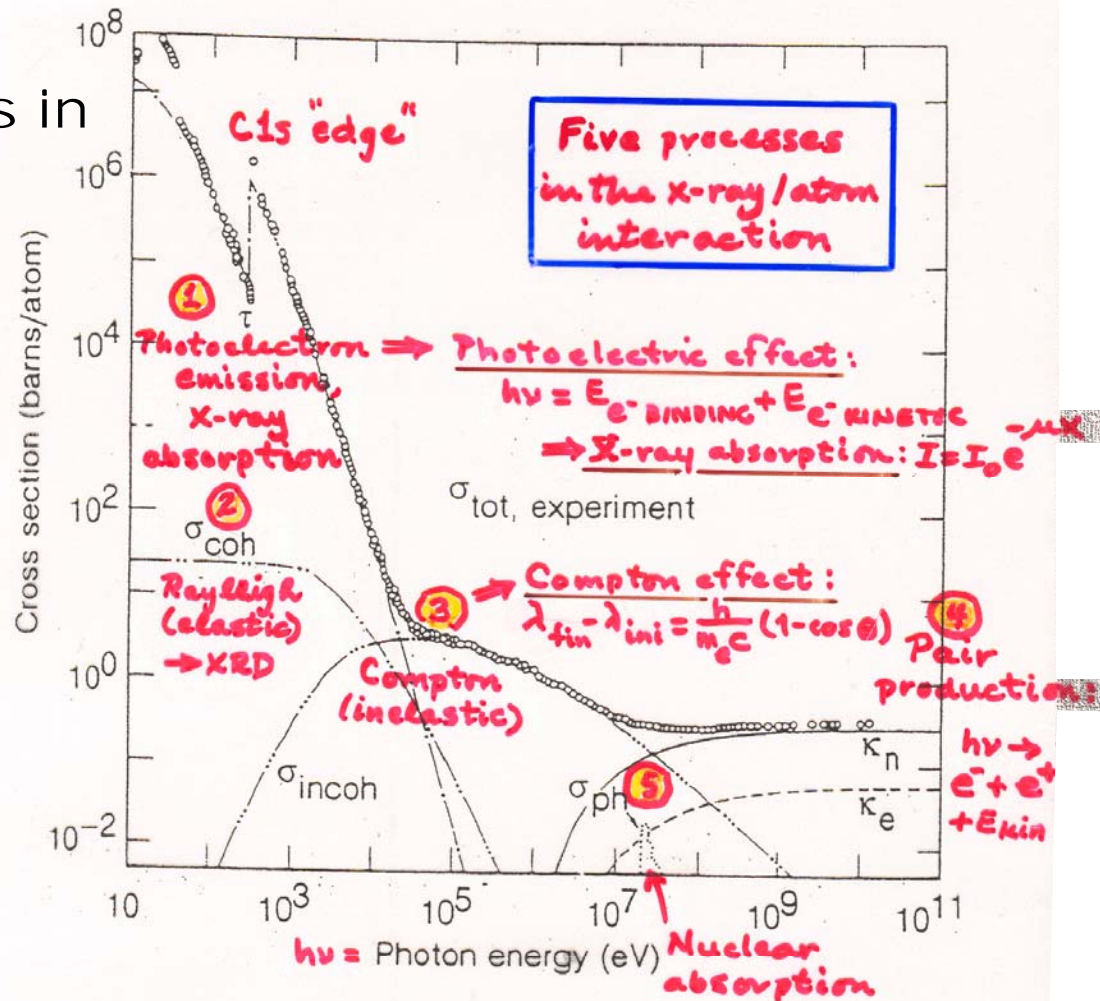 s in
10⁸
10⁶
10⁴
10²
10⁰
10⁻²
Cross section (barns/atom)
C1s "edge"
Five processes
in the x-ray/atom
interaction
1
τ
Photoelectron ⇒ Photoelectric effect:
emission,
x-ray
absorption
hν = E e⁻ BINDING + E e⁻ KINETIC
⇒ X-ray absorption: I = I₀e^-μx
σ tot, experiment
2
σcoh
Rayleigh
(elastic)
→ XRD
3
⇒ Compton effect:
λfin - λini = h/mₑc (1-cosθ)
Compton
(inelastic)
4
Pair
production:
hν →
e⁻ + e⁺
+ Ekin
σincoh
σph
5
κn
κe
10 10³ 10⁵ 10⁷ 10⁹ 10¹¹
hν = Photon energy (eV)
Nuclear
absorption